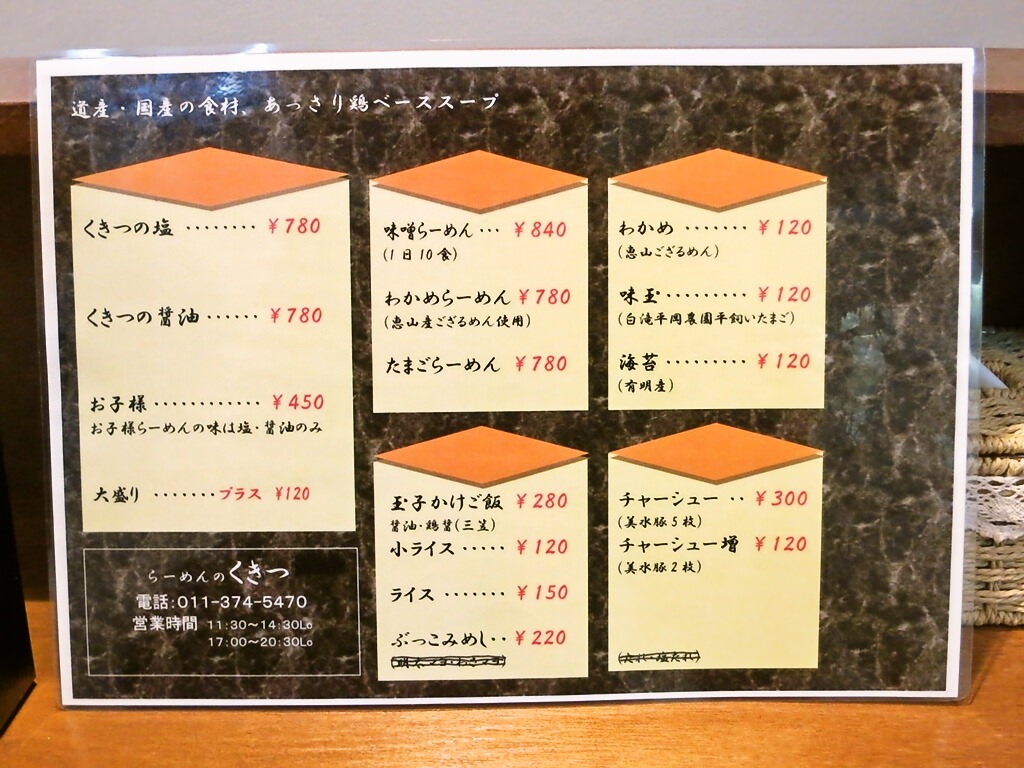 道産・国産の食材、あっさり鶏ベーススープ
くきつの塩 ········ ¥780
くきつの醤油 ······ ¥780
お子様 ············ ¥450
お子様らーめんの味は塩・醤油のみ
大盛り ·······プラス ¥120
味噌らーめん ··· ¥840
(1日10食)
わかめらーめん ¥780
(恵山産ござるめん使用)
たまごらーめん ¥780
わかめ ······· ¥120
(恵山ござるめん)
味玉 ········· ¥120
(白滝平岡農園平飼いたまご)
海苔 ········· ¥120
(有明産)
玉子かけご飯 ¥280
醤油・鶏醤(三笠)
小ライス ····· ¥120
ライス ······· ¥150
ぶっこみめし·· ¥220
チャーシュー ·· ¥300
(美水豚5枚)
チャーシュー増 ¥120
(美水豚2枚)
らーめんのくきつ
電話:011-374-5470
営業時間 11:30～14:30Lo
17:00～20:30Lo